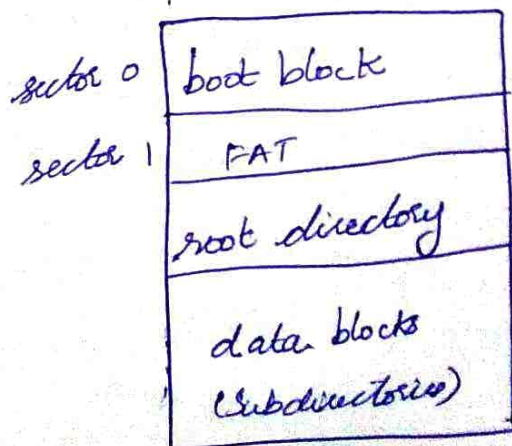 sector 0 boot block
sector 1 FAT
root directory
data blocks
(subdirectories)